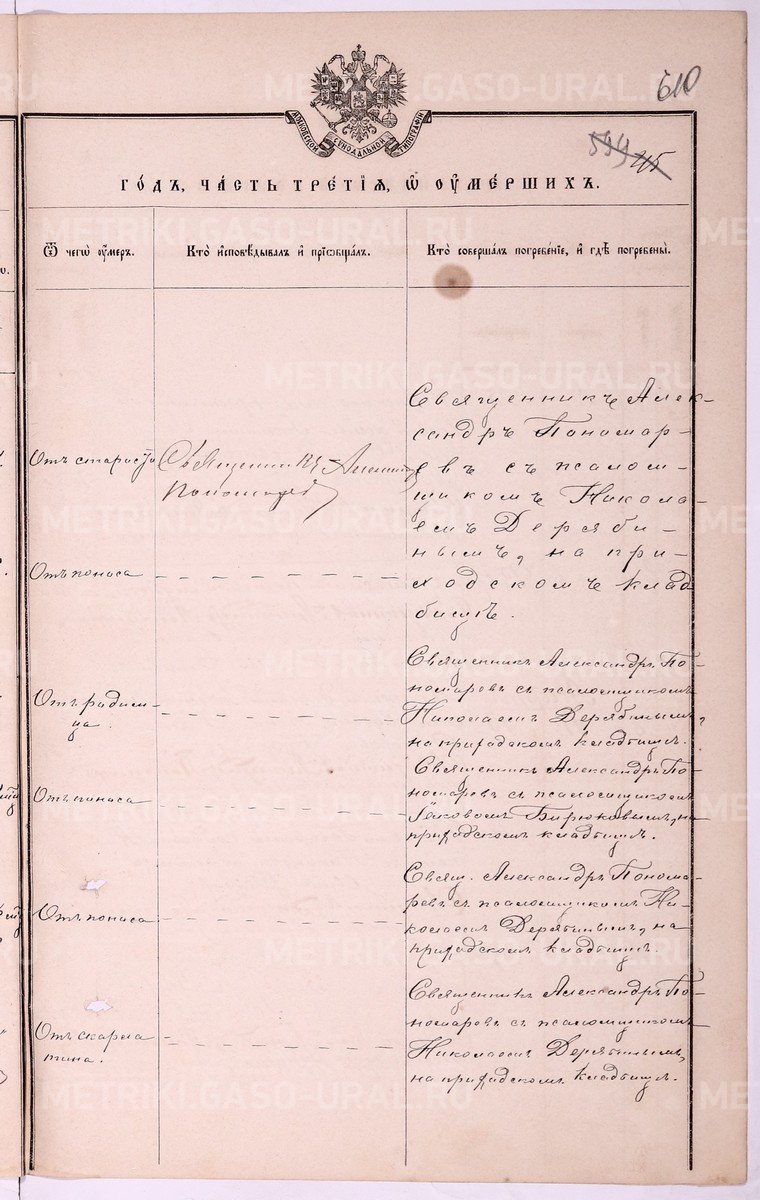 610
599
МОСКОВСКОЙ СУНОДАЛЬНОЙ ТИПОГРАФІИ
ГО́ДЪ, ЧА́СТЬ ТРЕ́ТІѦ, Ѡ҆ ОУ҆МЕ́РШИХЪ.
Ѿ чегѡ̀ оу҆́меръ.
Кто̀ и҆сповѣ́дывалъ и҆ прїѡбща́лъ.
Кто̀ соверша́лъ погребе́нїе, и҆ гдѣ̀ погребены̀.
Отъ старости
Священникъ Александръ
Пономаревъ
Священникъ Алек-
сандръ Пономар-
евъ съ псалом-
щикомъ Никола-
емъ Деряби-
нымъ, на при-
ходскомъ клад
бищѣ.
Отъ поноса
Отъ родим-
ца.
Священникъ Александръ По-
номаревъ съ псаломщикомъ
Николаемъ Дерябинымъ,
на приходскомъ кладбищѣ.
Отъ поноса
Священникъ Александръ По-
номаревъ съ псаломщикомъ
Іаковомъ Бирюковымъ, на
приходскомъ кладбищѣ.
Отъ поноса
Свящ. Александръ Понома-
ревъ съ псаломщикомъ Ни-
колаемъ Дерябинымъ, на
приходскомъ кладбищѣ.
Отъ скарла
тина.
Священникъ Александръ По-
номаревъ съ псаломщикомъ
Николаемъ Дерябинымъ,
на приходскомъ кладбищѣ.
METRIKI.GASO-URAL.RU